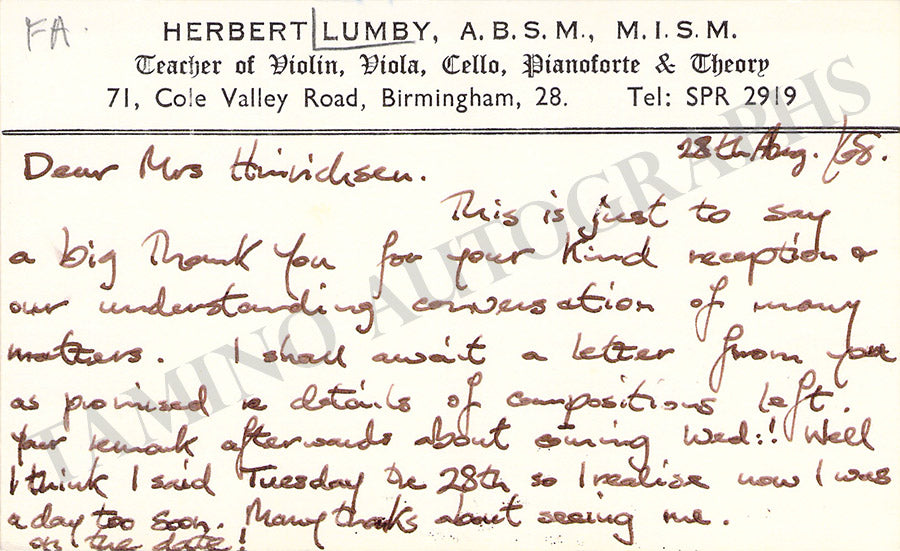 FA.
HERBERT LUMBY, A.B.S.M., M.I.S.M.
Teacher of Violin, Viola, Cello, Pianoforte & Theory
71, Cole Valley Road, Birmingham, 28. Tel: SPR 2919
28th Aug. /68.
Dear Mrs Hinrichsen.
This is just to say
a big Thank You for your kind reception &
our understanding conversation of many
matters. I shall await a letter from you
as promised re details of compositions left.
Your remark afterwards about coming Wed:! Well
I think I said Tuesday the 28th so I realise now I was
a day too soon. Many thanks about seeing me.
on the date!
TAMINO AUTOGRAPHS